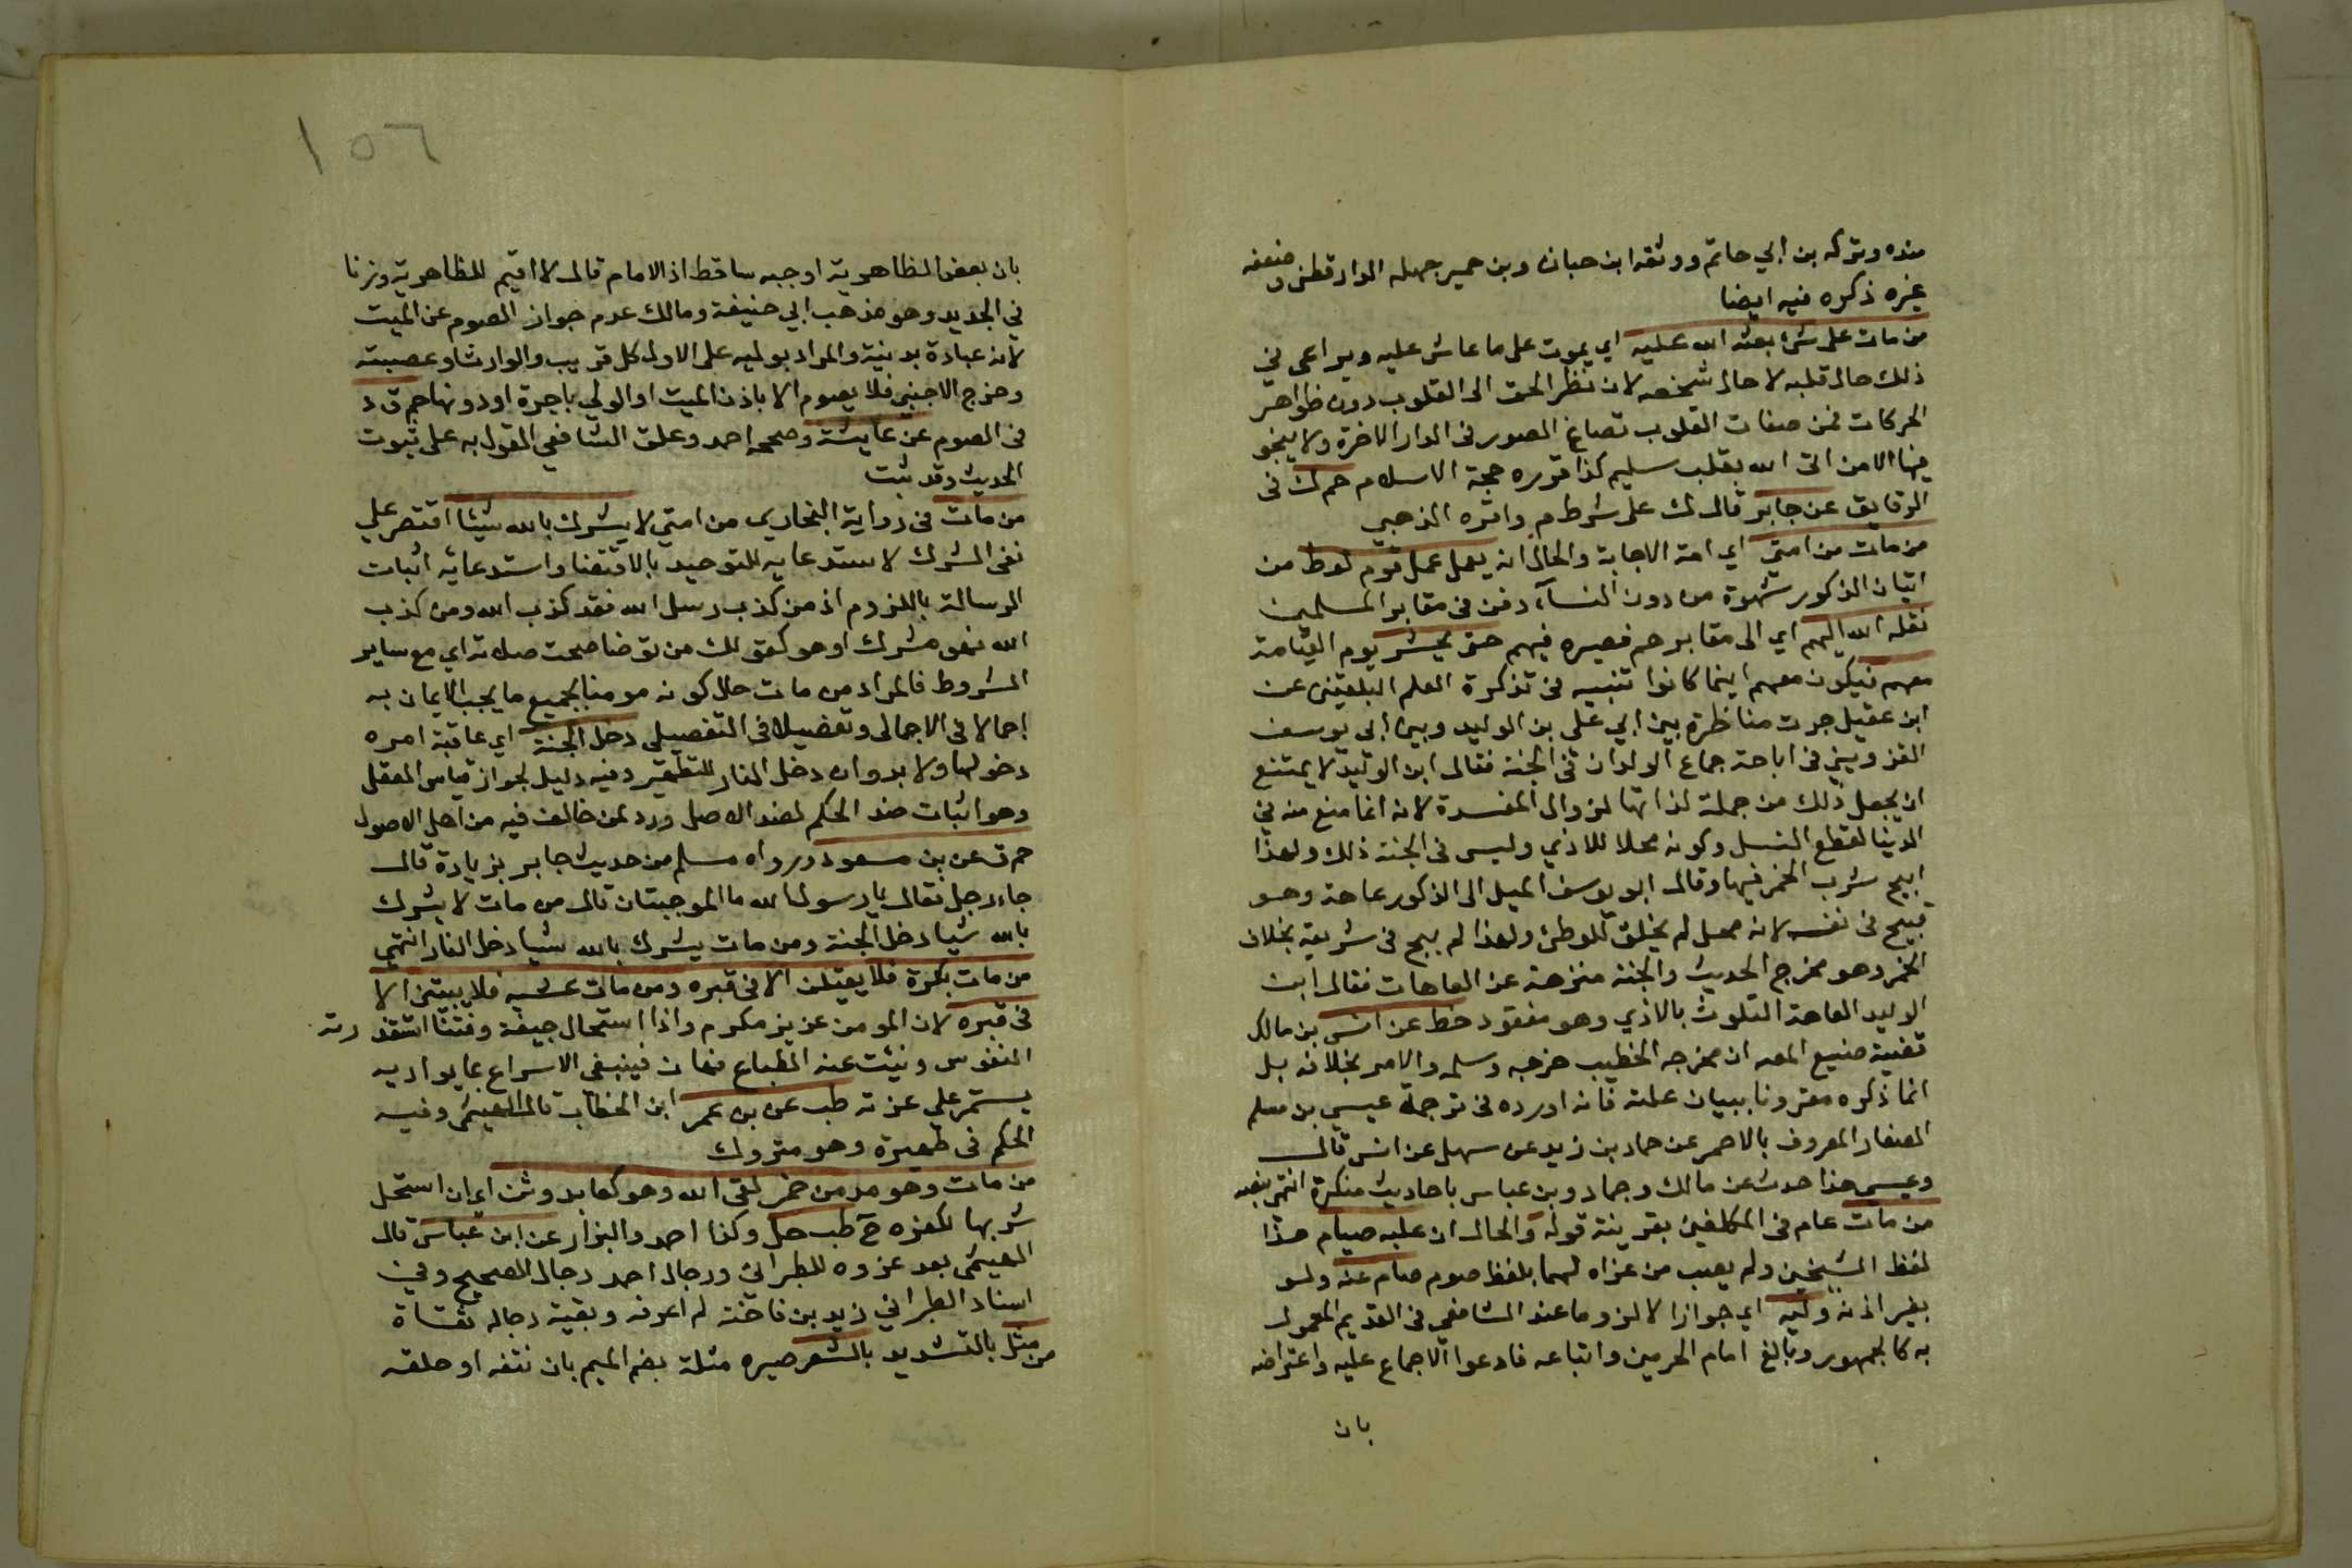 منده وتركه بن ابي حاتم ووثقه ابن حبان وبن حمير جهله الدارقطني وضعفه
غيره ذكره فيه ايضا
من مات على شئ بعثه الله عليه اي يموت على ما عاش عليه ويراعى في
ذلك حال قلبه لا حال شخصه لان نظر الحق الى القلوب دون ظواهر
الحركات فمن صفات القلوب تصاغ الصور في الدار الاخرة ولا ينجو
فيها الا من اتى الله بقلب سليم كذا قرره حجة الاسلام حم ك في
الرقايق عن جابر قال ك على شرط م واقره الذهبي
من مات من امتي اي امة الاجابة والحال انه يعمل عمل قوم لوط من
اتيان الذكور شهوة من دون النساء دفن في مقابر المسلمين
نقله الله اليهم اي الى مقابرهم فصيره فيهم حتى يحشر يوم القيامة
معهم فيكون معهم اينما كانوا تنبيه في تذكرة العلم البلقيني عن
ابن عقيل جرت مناظرة بين ابي علي بن الوليد وبين ابي يوسف
القزويني في اباحة جماع الولدان في الجنة فقال ابن الوليد لا يمتنع
ان يجعل ذلك من جملة لذاتها لزوال المفسدة لانه انما منع منه في
الدنيا لقطع النسل وكونه محلا للاذي وليس في الجنة ذلك ولهذا
ابيح شرب الخمر فيها وقال ابو يوسف الميل الى الذكور عاهة وهو
قبيح في نفسه لانه محل لم يخلق للوطئ ولهذا لم يبح في شريعة بخلاف
الخمر وهو مخرج الحديث والجنة منزهة عن العاهات فقال ابن
الوليد العاهة التلوث بالاذي وهو مفقود خط عن انس بن مالك
تقضية صنيع المص ان مخرجه الخطيب خرجه وسلمه والامر بخلافه بل
انما ذكره مقرونا ببيان علته فانه اورده في ترجمة عيسى بن مسلم
الصفار المعروف بالاحمر عن حماد بن زيد عن سهل عن انس قال
وعيسى هذا حدث عن مالك وحماد وبن عباس باحاديث منكرة انتهى بنصه
من مات عام في المكلفين بقرينة قوله والحال ان عليه صيام هذا
لفظ الشيخين ولم يصب من عزاه لهما بلفظ صوم صام عنه ولو
بغير اذنه وليه اي جوازا لا لزوما عند الشافعي في القديم المعمول
به كالجمهور وبالغ امام الحرمين واتباعه فادعوا الاجماع عليه واعتراضه
بان
١٥٦
بان بعض الظاهرية اوجبه ساقط اذ الامام قال لا اقيم للظاهرية وزنا
في الجديد وهو مذهب ابي حنيفة ومالك عدم جواز الصوم عن الميت
لانه عبادة بدنية والمراد بوليه على الاول كل قريب والوارث او عصبته
وخرج الاجنبي فلا يصوم الا باذن الميت او الولي باجرة او دونها حم ق د
في الصوم عن عايشة وصححه احمد وعلق الشافعي القول به على ثبوت
الحديث وقد ثبت
من مات في رواية البخاري من امتي لا يشرك بالله شيئا اقتصر على
نفي الشرك لاستدعايه للتوحيد بالاقتضا واستدعائه اثبات
الرسالة باللزوم اذ من كذب رسل الله فقد كذب الله ومن كذب
الله فهو مشرك او هو كقولك من توضا صحت صلاته اي مع ساير
الشروط فالمراد من مات حال كونه مومنا بجميع ما يجب الايمان به
اجمالا في الاجمالي وتفصيلا في التفصيلي دخل الجنة اي عاقبة امره
دخولها ولا بد وان دخل النار للتطهير وفيه دليل لجواز قياس العقل
وهو اثبات ضد الحكم لضد الاصل ورد لمن خالف فيه من اهل الاصول
حم ق عن بن مسعود ورواه مسلم من حديث جابر بزيادة قال
جاء رجل فقال يا رسول الله ما الموجبتان قال من مات لا يشرك
بالله شيا دخل الجنة ومن مات يشرك بالله شيا دخل النار انتهى
من مات بكرة فلا يقيلن الا في قبره ومن مات عشية فلا يبيتن الا
في قبره لان المومن عزيز مكرم واذا استحال جيفة ونتنا استقذرته
النفوس ونبت عنه الطباع فهان فينبغي الاسراع بما يواريه
يستمر على عزته طب عن بن عمر ابن الخطاب قال الهيثمي وفيه
الحكم في ظهيرة وهو متروك
من مات وهو مدمن خمر لقي الله وهو كعابد وثن اي ان استحل
شربها لكفره ح طب حل وكذا احمد والبزار عن ابن عباس قال
الهيثمي بعد عزوه للطبراني ورجال احمد رجال الصحيح وفي
اسناد الطبراني زيد بن فاختة لم اعرفه وبقية رجاله ثقاة
من مثل بالتشديد بالشعر صيره مثلة بضم الميم بان نتفه او حلقه